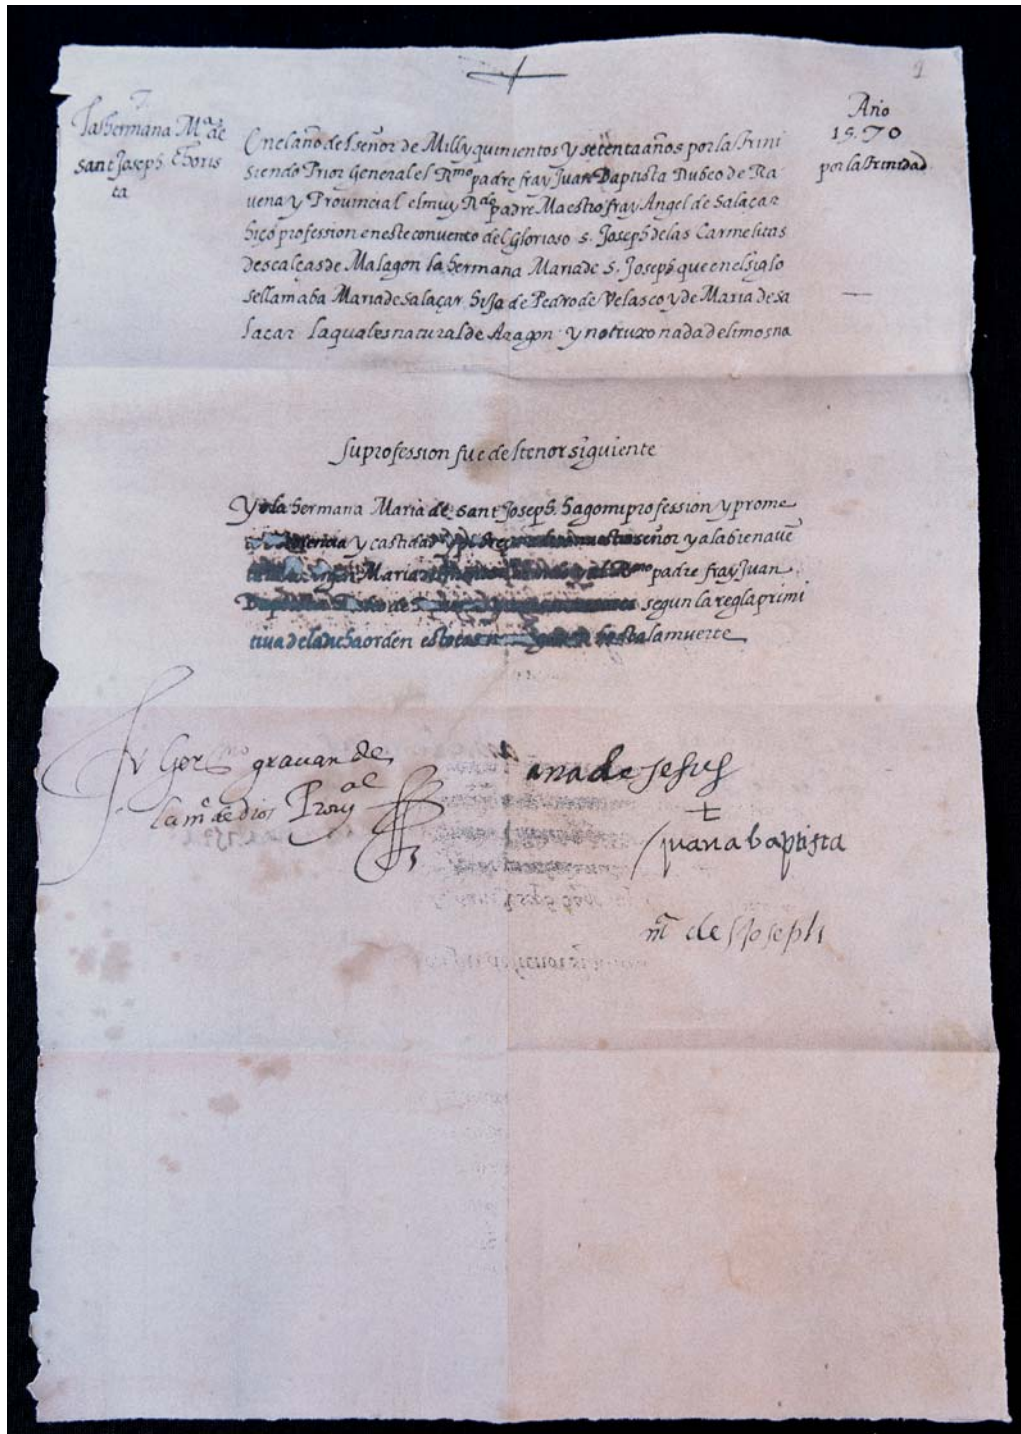 1
La hermana Mª de
sant Joseph. Choris
ta
Año
1570
por la trinidad
En el año del señor de Mill y quinientos y setenta años por la trini
siendo Prior General el Rmo padre fray Juan Baptista Rubeo de Ra
uena y Prouincial el muy Rdo padre Maestro fray Angel de Salaçar
hiço profession en este conuento del Glorioso s. Joseph de las Carmelitas
descalças de Malagon la hermana Maria de s. Joseph que en el siglo
se llamaba Maria de Salaçar hija de Pedro de Velasco y de Maria de sa
laçar la qual es natural de Aragon y no truxo nada de limosna
Su profession fue del tenor siguiente
Yo la hermana Maria de sant Joseph. hago mi profession y prome
y castidad señor y a la bien auē
Maria Rmo padre fray Juan
segun la regla primi
tiua de la dicha orden esto hasta la muerte
fr Germo gracian de
la me de dios Proual
ana de Jesus
Juana baptista
mª de s Joseph